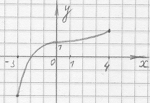 y
1
-3 1 4 x